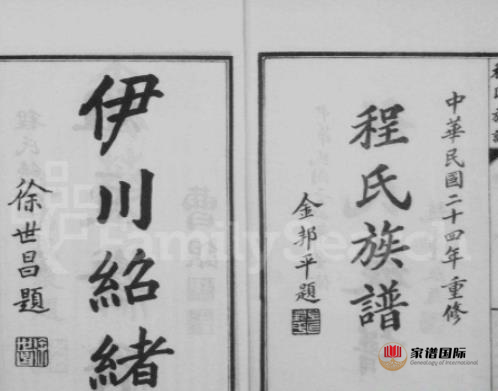 中華民國二十四年重修
程氏族譜
金邦平題
伊川紹緒
徐世昌題
程氏族譜
FamilySearch
家谱国际
Genealogy of International